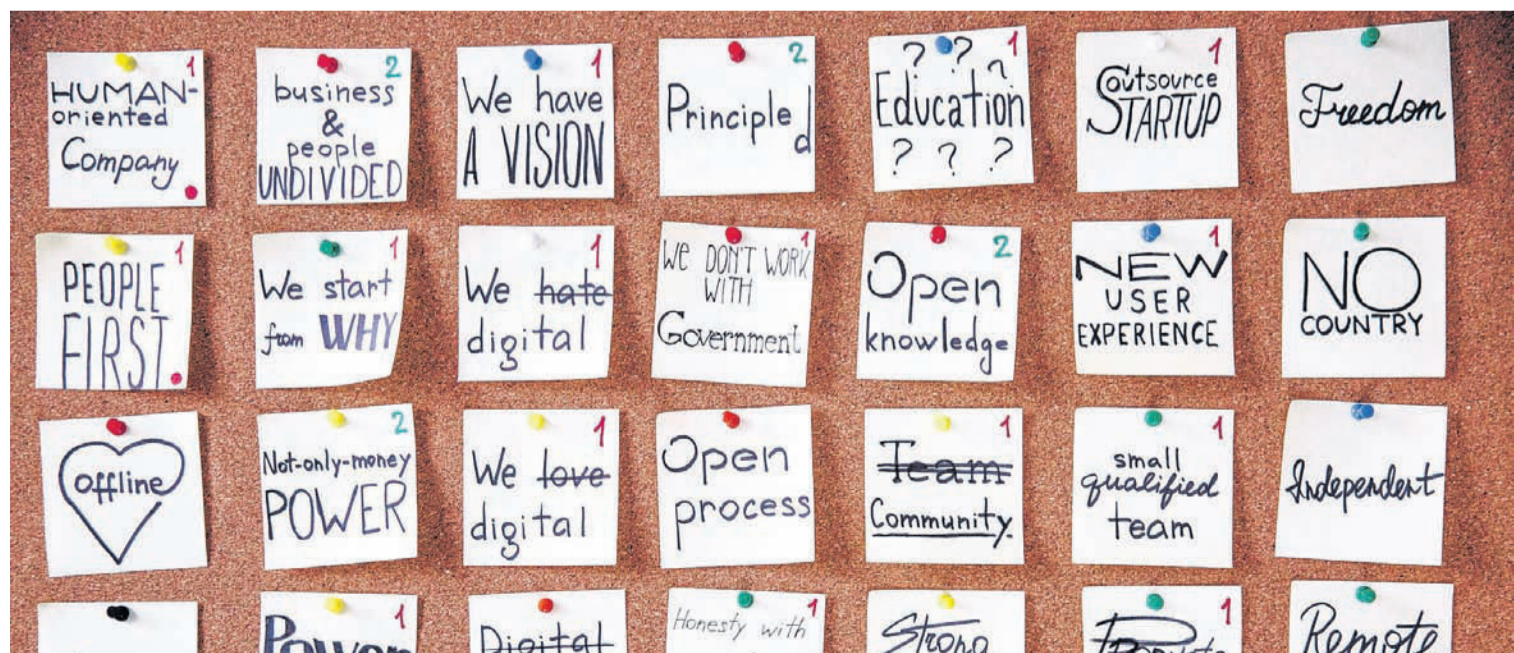 1
HUMAN-
oriented
Company
2
business
&
people
UNDIVIDED
1
We have
A VISION
2
Principled
1
? ? ?
Education
? ? ?
1
Outsource
STARTUP
Freedom
1
PEOPLE
FIRST
1
We start
from WHY
1
We hate
digital
1
We DON'T WORK
WITH
Government
2
Open
knowledge
1
NEW
USER
EXPERIENCE
NO
COUNTRY
offline
2
Not-only-money
POWER
1
We love
digital
Open
process
1
Team
Community.
1
small
qualified
team
Independent
1
Power
Digital
1
Honesty with
Strong
1
Remote